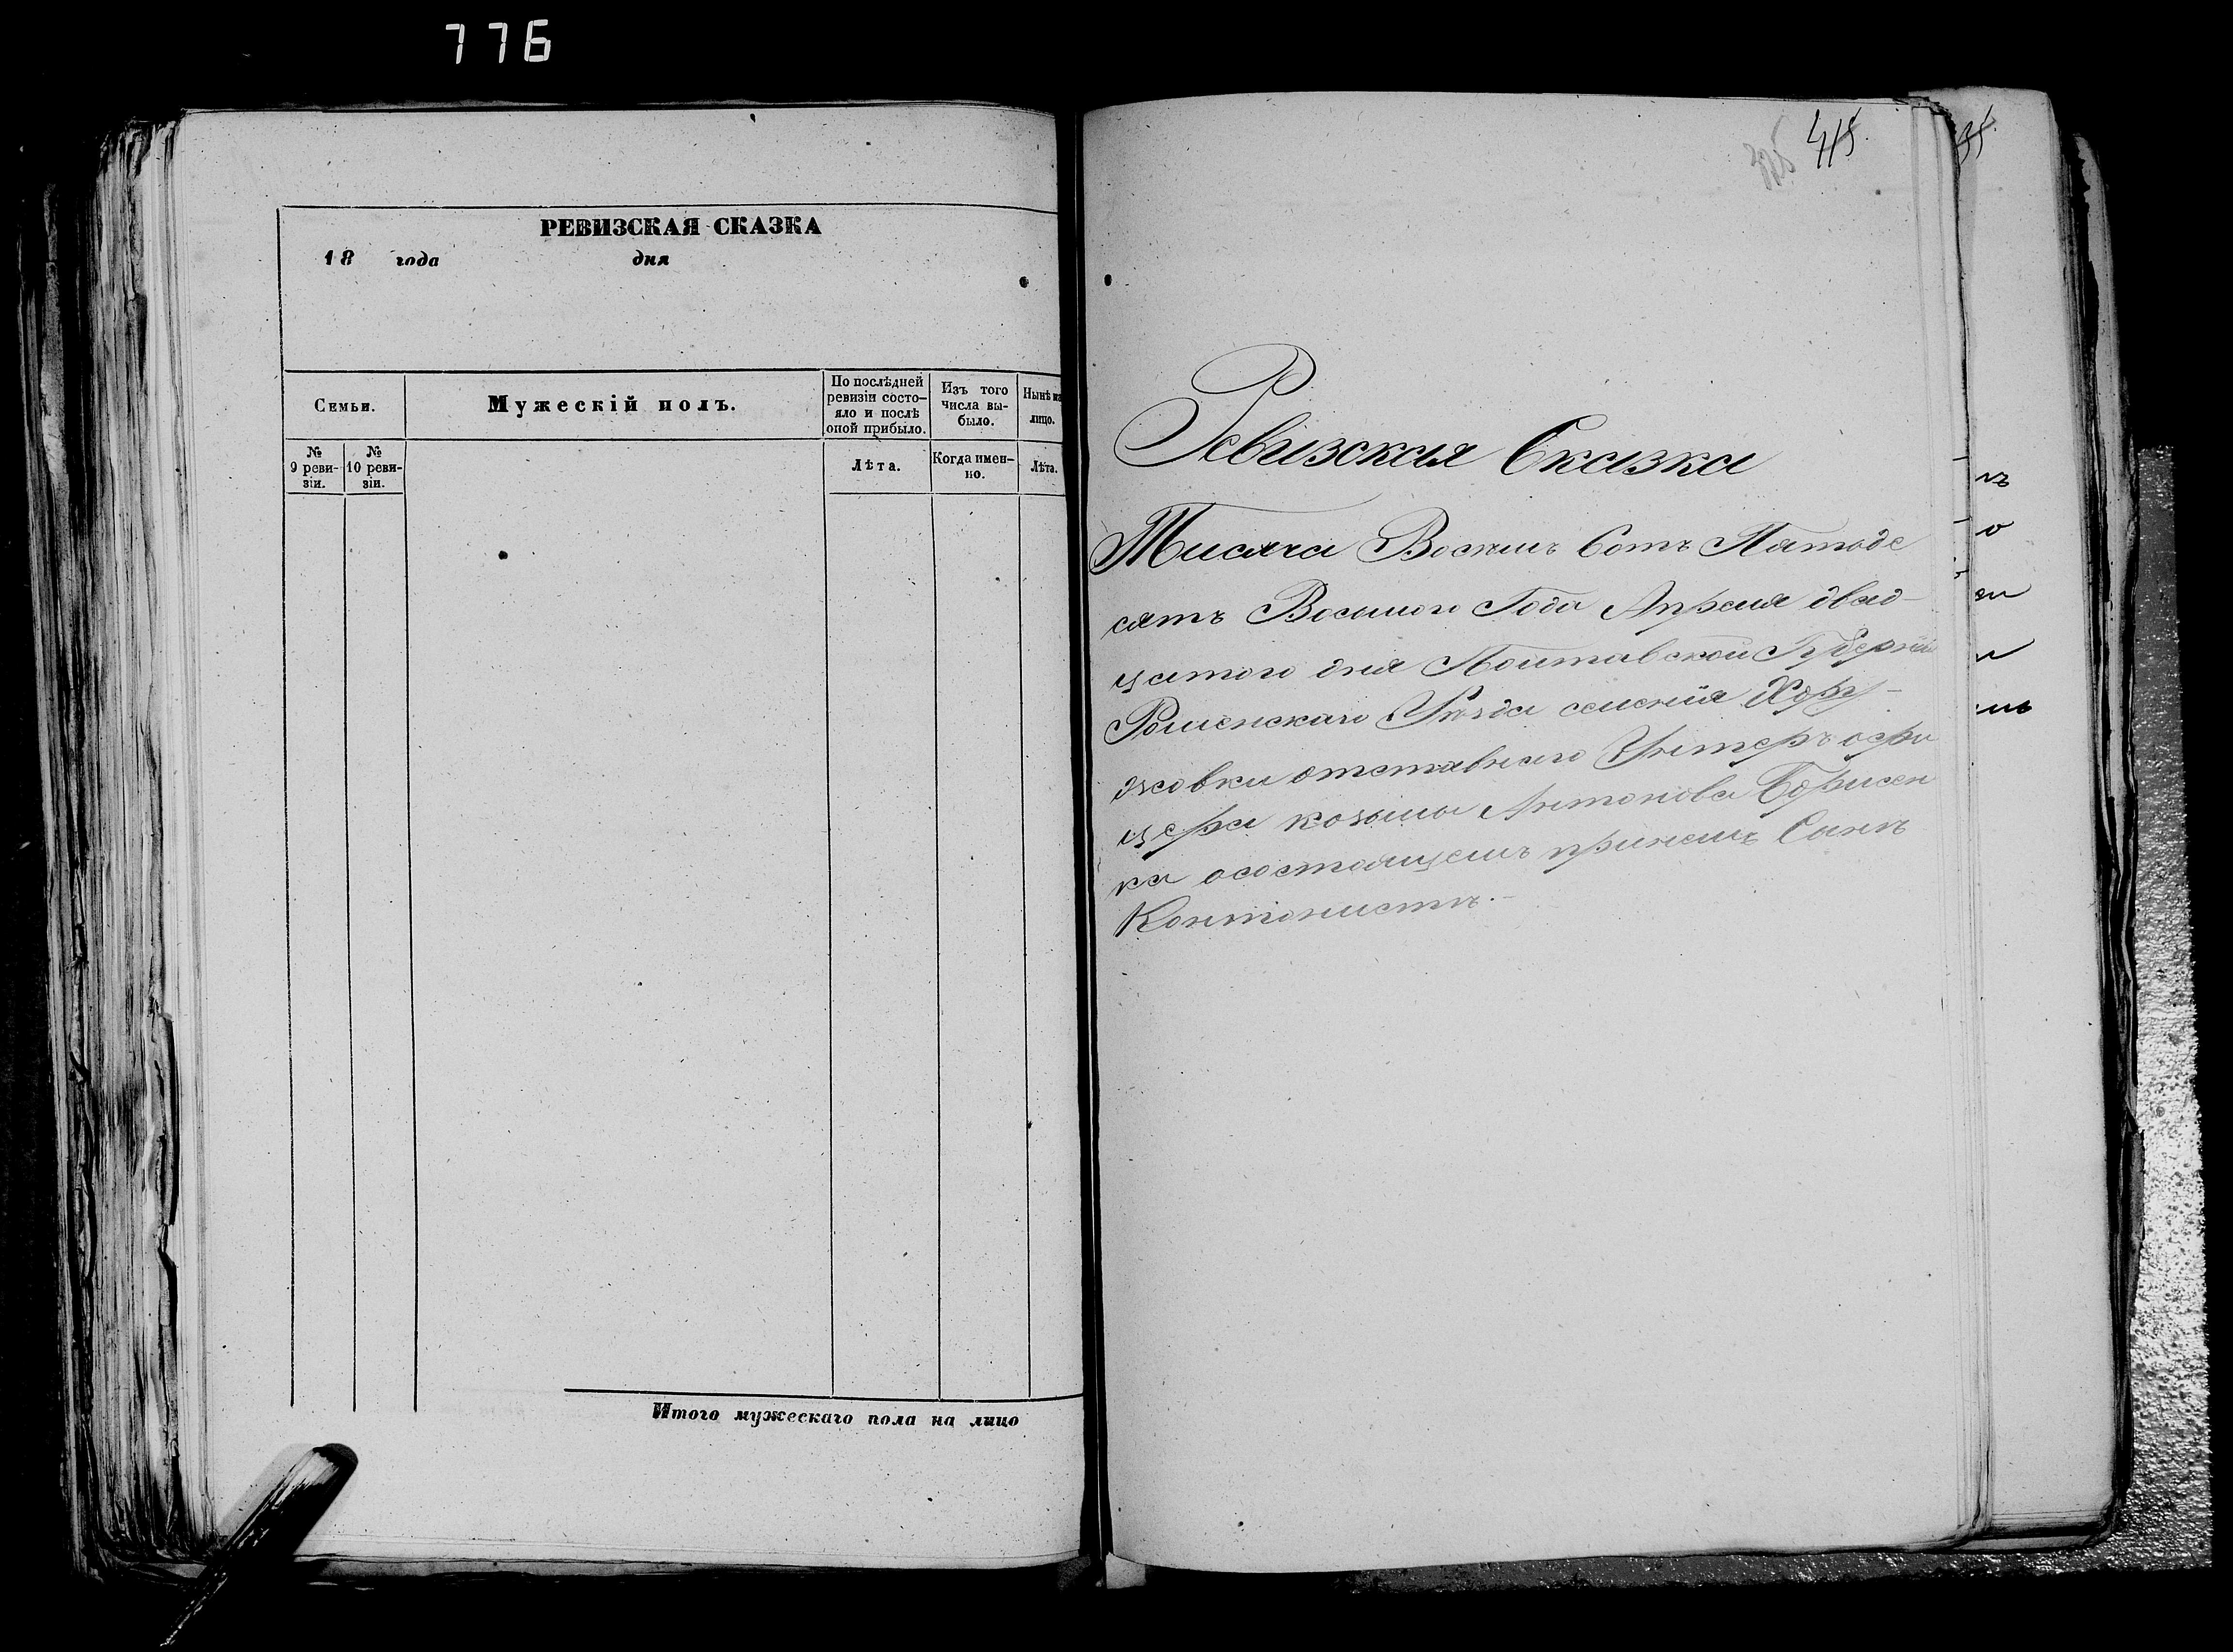 776
РЕВИЗСКАЯ СКАЗКА
18 года дня
Семьи.
Мужескій полъ.
По послѣдней
ревизіи состо-
яло и послѣ
оной прибыло.
Изъ того
числа вы-
было.
Нынѣ на
лицо.
№
9 реви-
зіи.
№
10 реви-
зіи.
Лѣта.
Когда имен-
но.
Лѣта.
Итого мужескаго пола на лицо
325 415.
Ревизская Сказка
Тисяча Восемь Сотъ Пятьде
сятъ Восьмого Года Апреля двад-
цатого дня Полтавской Губерніи
Роменскаго Уѣзда селенія Хор
жовки отставнаго Унтеръ офи
цера козьмы Антонова Борисен
ка осостоящемъ принемъ Сынѣ
Контонистѣ.-